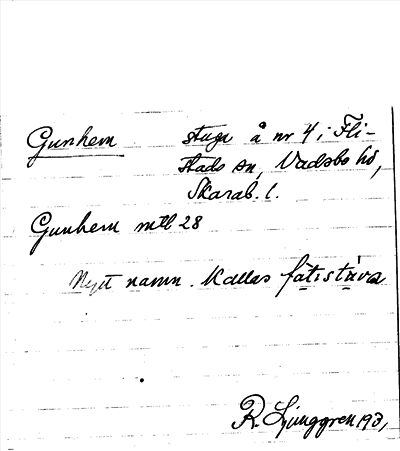 Gunhem stuga å nr 4 i Fli-
stads sn, Vadsbo hd,
Skarab. l.
Gunhem mtl 28
Nytt namn. Kallas fàtistùva
R. Ljunggren 1931